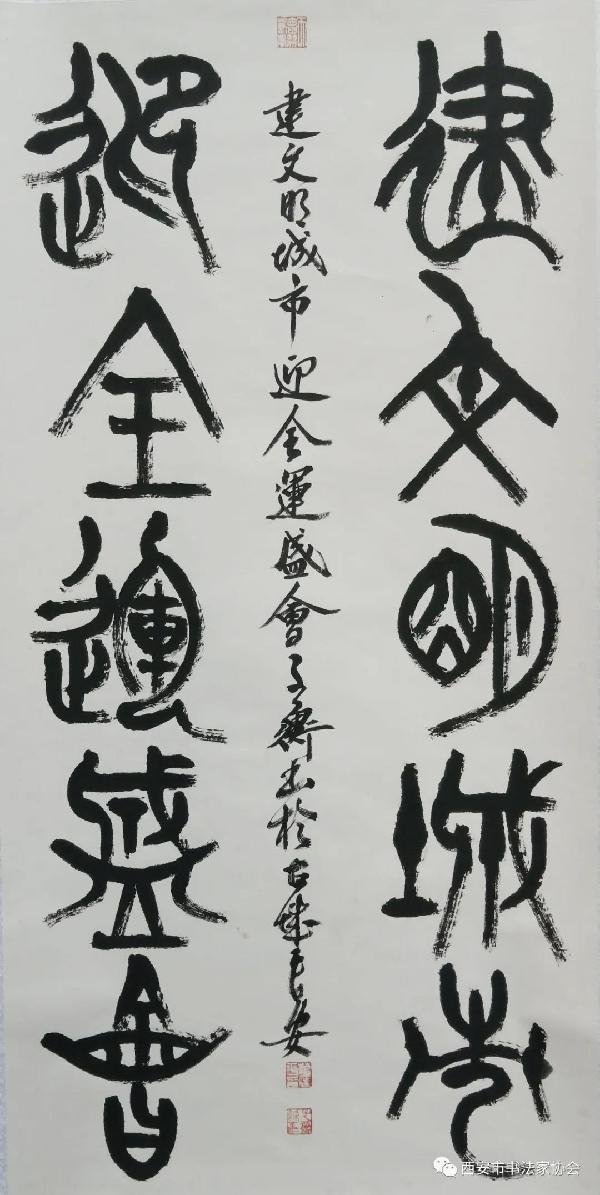 建文明城市
迎全運盛會
建文明城市迎全運盛會子齋書於古城長安
西安市书法家协会